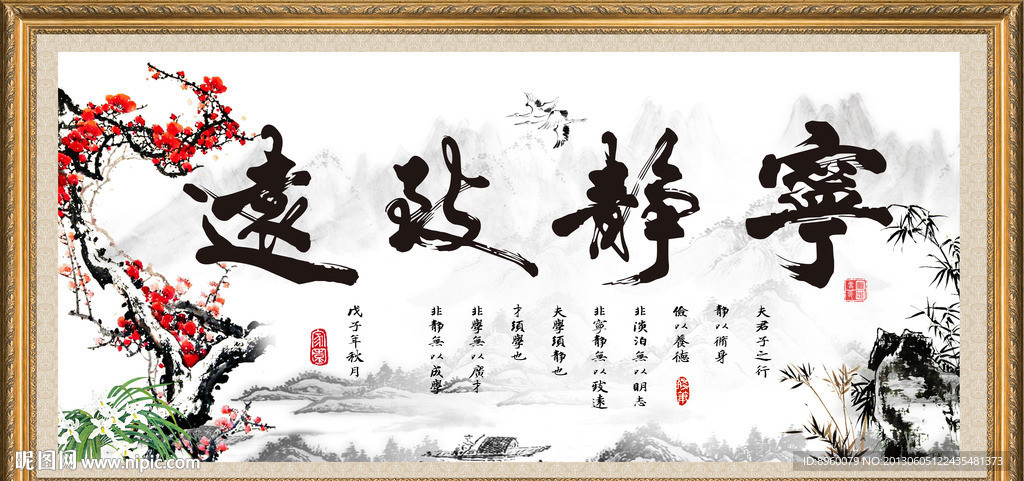 寧靜致遠
夫君子之行
靜以術身
儉以養德
非淡泊無以明志
非寧靜無以致遠
夫學須靜也
才須學也
非學無以廣才
非靜無以成學
戊子年秋月
昵图网 www.nipic.com
ID:8960079 NO:20130605122435481373